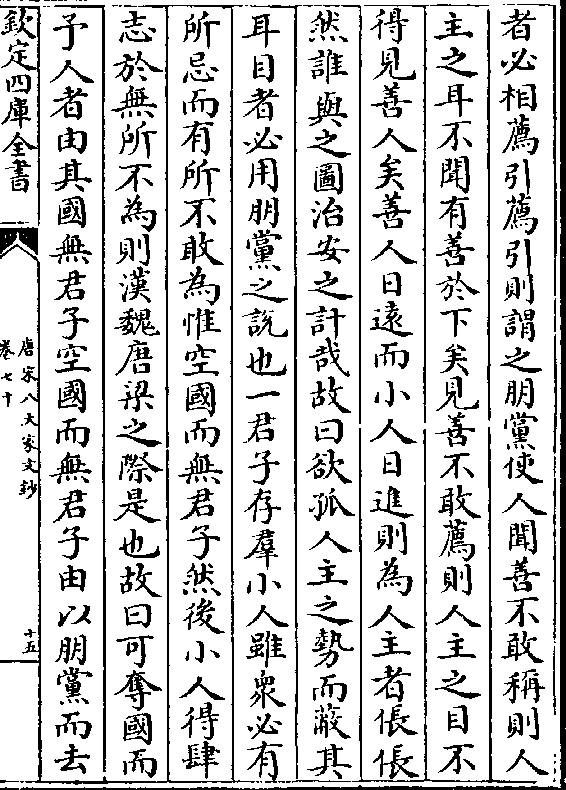 者必相薦引薦引則謂之朋黨使人聞善不敢稱則人
主之耳不聞有善於下矣見善不敢薦則人主之目不
得見善人矣善人日遠而小人日進則為人主者倀倀
然誰與之圖治安之計哉故曰欲孤人主之勢而蔽其
耳目者必用朋黨之說也一君子存羣小人雖衆必有
所忌而有所不敢為惟空國而無君子然後小人得肆
志於無所不為則漢魏唐梁之際是也故曰可奪國而
予人者由其國無君子空國而無君子由以朋黨而去
欽定四庫全書
唐宋八大家文鈔
卷七十
十五